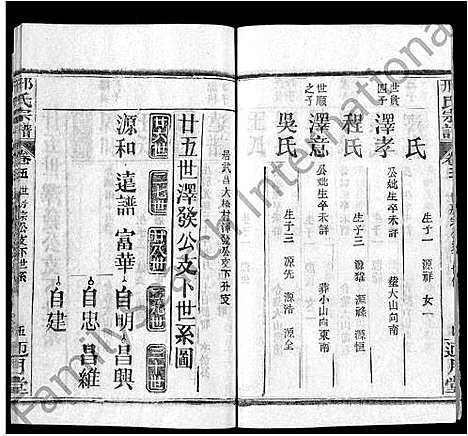 邢氏宗譜
卷五
氏
生子一 源祥 女一
世貴
四子
澤孝
公妣生卒未詳
葬大山向南
程氏
生子三 源雄 源恒
世順
之子
澤意
公妣生卒未詳
葬小山向東南
吳氏
生子三 源先 源浩 源
廿五世澤發公支下世系圖
居武昌大橋村
廿六世
源和
廿七世
遠譜
廿八世
富華
廿九世
自明
自忠
自建
三十世
昌興
昌維
邢氏宗譜
卷五
公支下世系
五
Family Search International